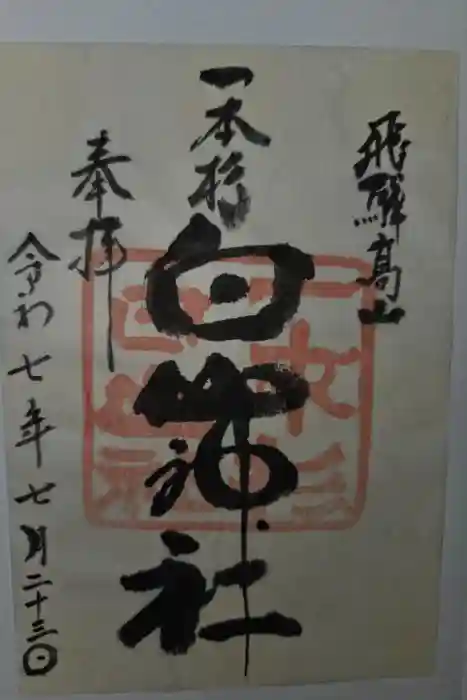 飛騨高山
一本杉
白山神社
奉拝
令和七年七月二十三日